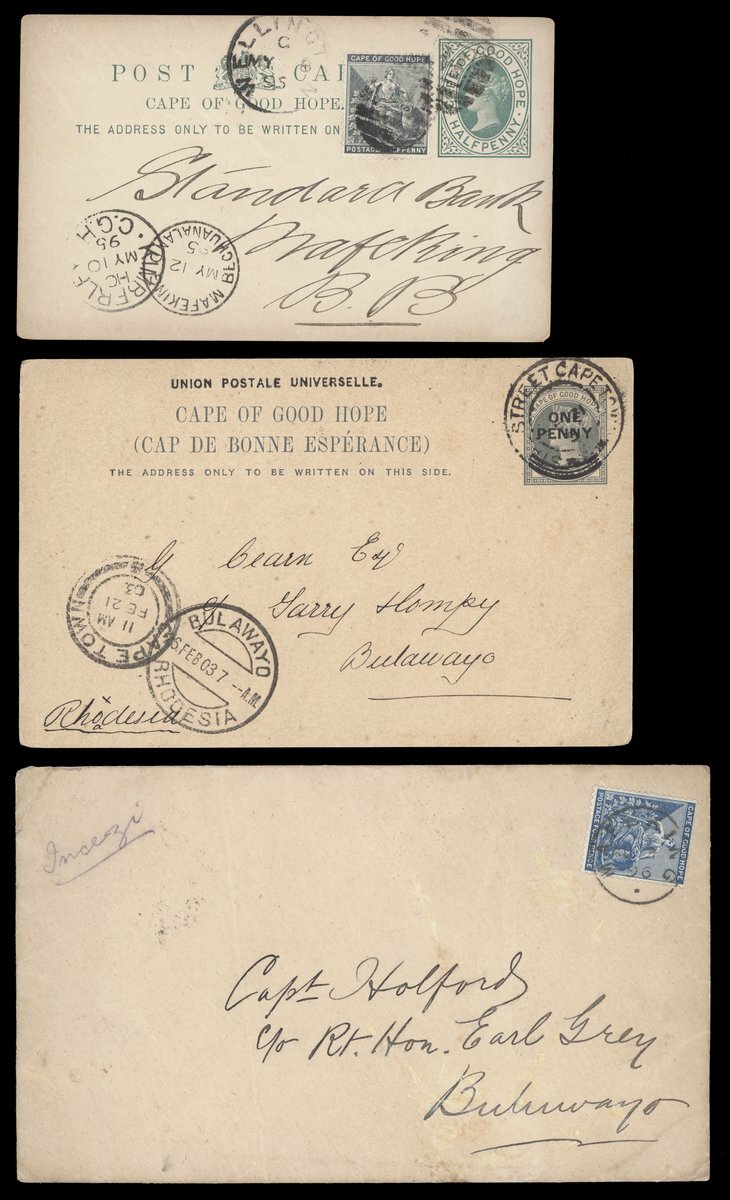 POST CA
CAPE OF GOOD HOPE.
THE ADDRESS ONLY TO BE WRITTEN ON
WELLINGT
G
MY
95
CAPE OF GOOD HOPE
POSTAGE HALFPENNY
CAPE OF GOOD HOPE
HALFPENNY
Standard Bank
Mafeking
B.B
KIMBERLEY
C.G.H.
HC
MY 10
95
MAFEKING
BECHUANALAND
MY 12
95
UNION POSTALE UNIVERSELLE.
CAPE OF GOOD HOPE
(CAP DE BONNE ESPÉRANCE)
THE ADDRESS ONLY TO BE WRITTEN ON THIS SIDE.
STREET CAPE TOW
CAPE OF GOOD HOPE
ONE
PENNY
G Cearn Esq
Garry
Bulawayo
Rhodesia
CAPE TOWN
11 AM
FE 21
03
BULAWAYO
6 FEB 03 7 --A.M.
RHODESIA
Incezi
CAPE OF GOOD HOPE
MAF KING
96
Capt Holford
c/o Rt. Hon. Earl Grey
Buluwayo